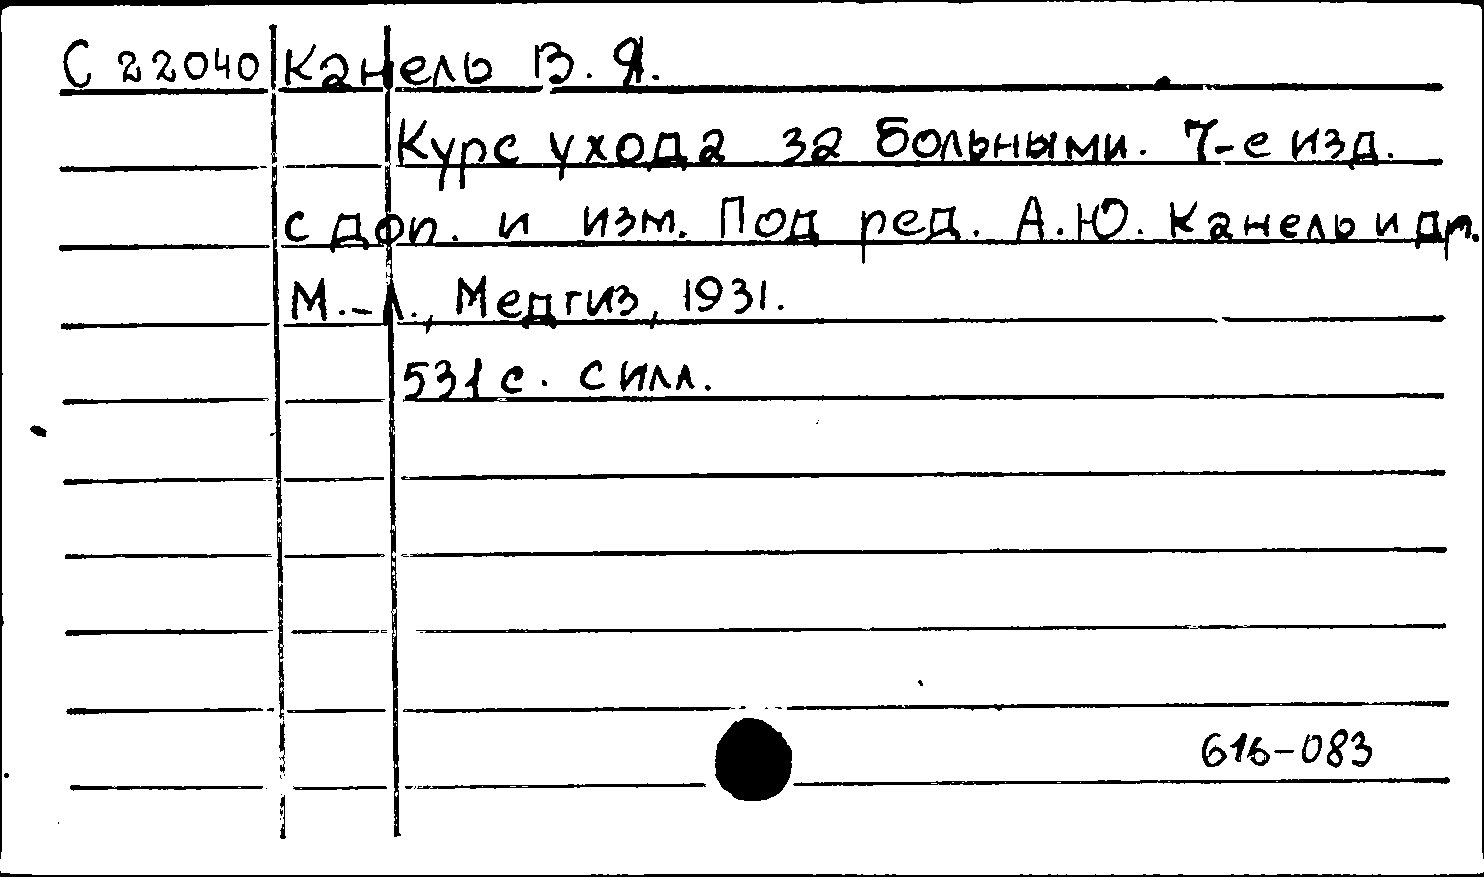 С 22040 Канель В. Я.
Курс ухода за больными. 7-е изд.
с доп. и изм. Под ред. А.Ю. Канель и др.
М.-Л., Медгиз, 1931.
531 с. с илл.
616-083